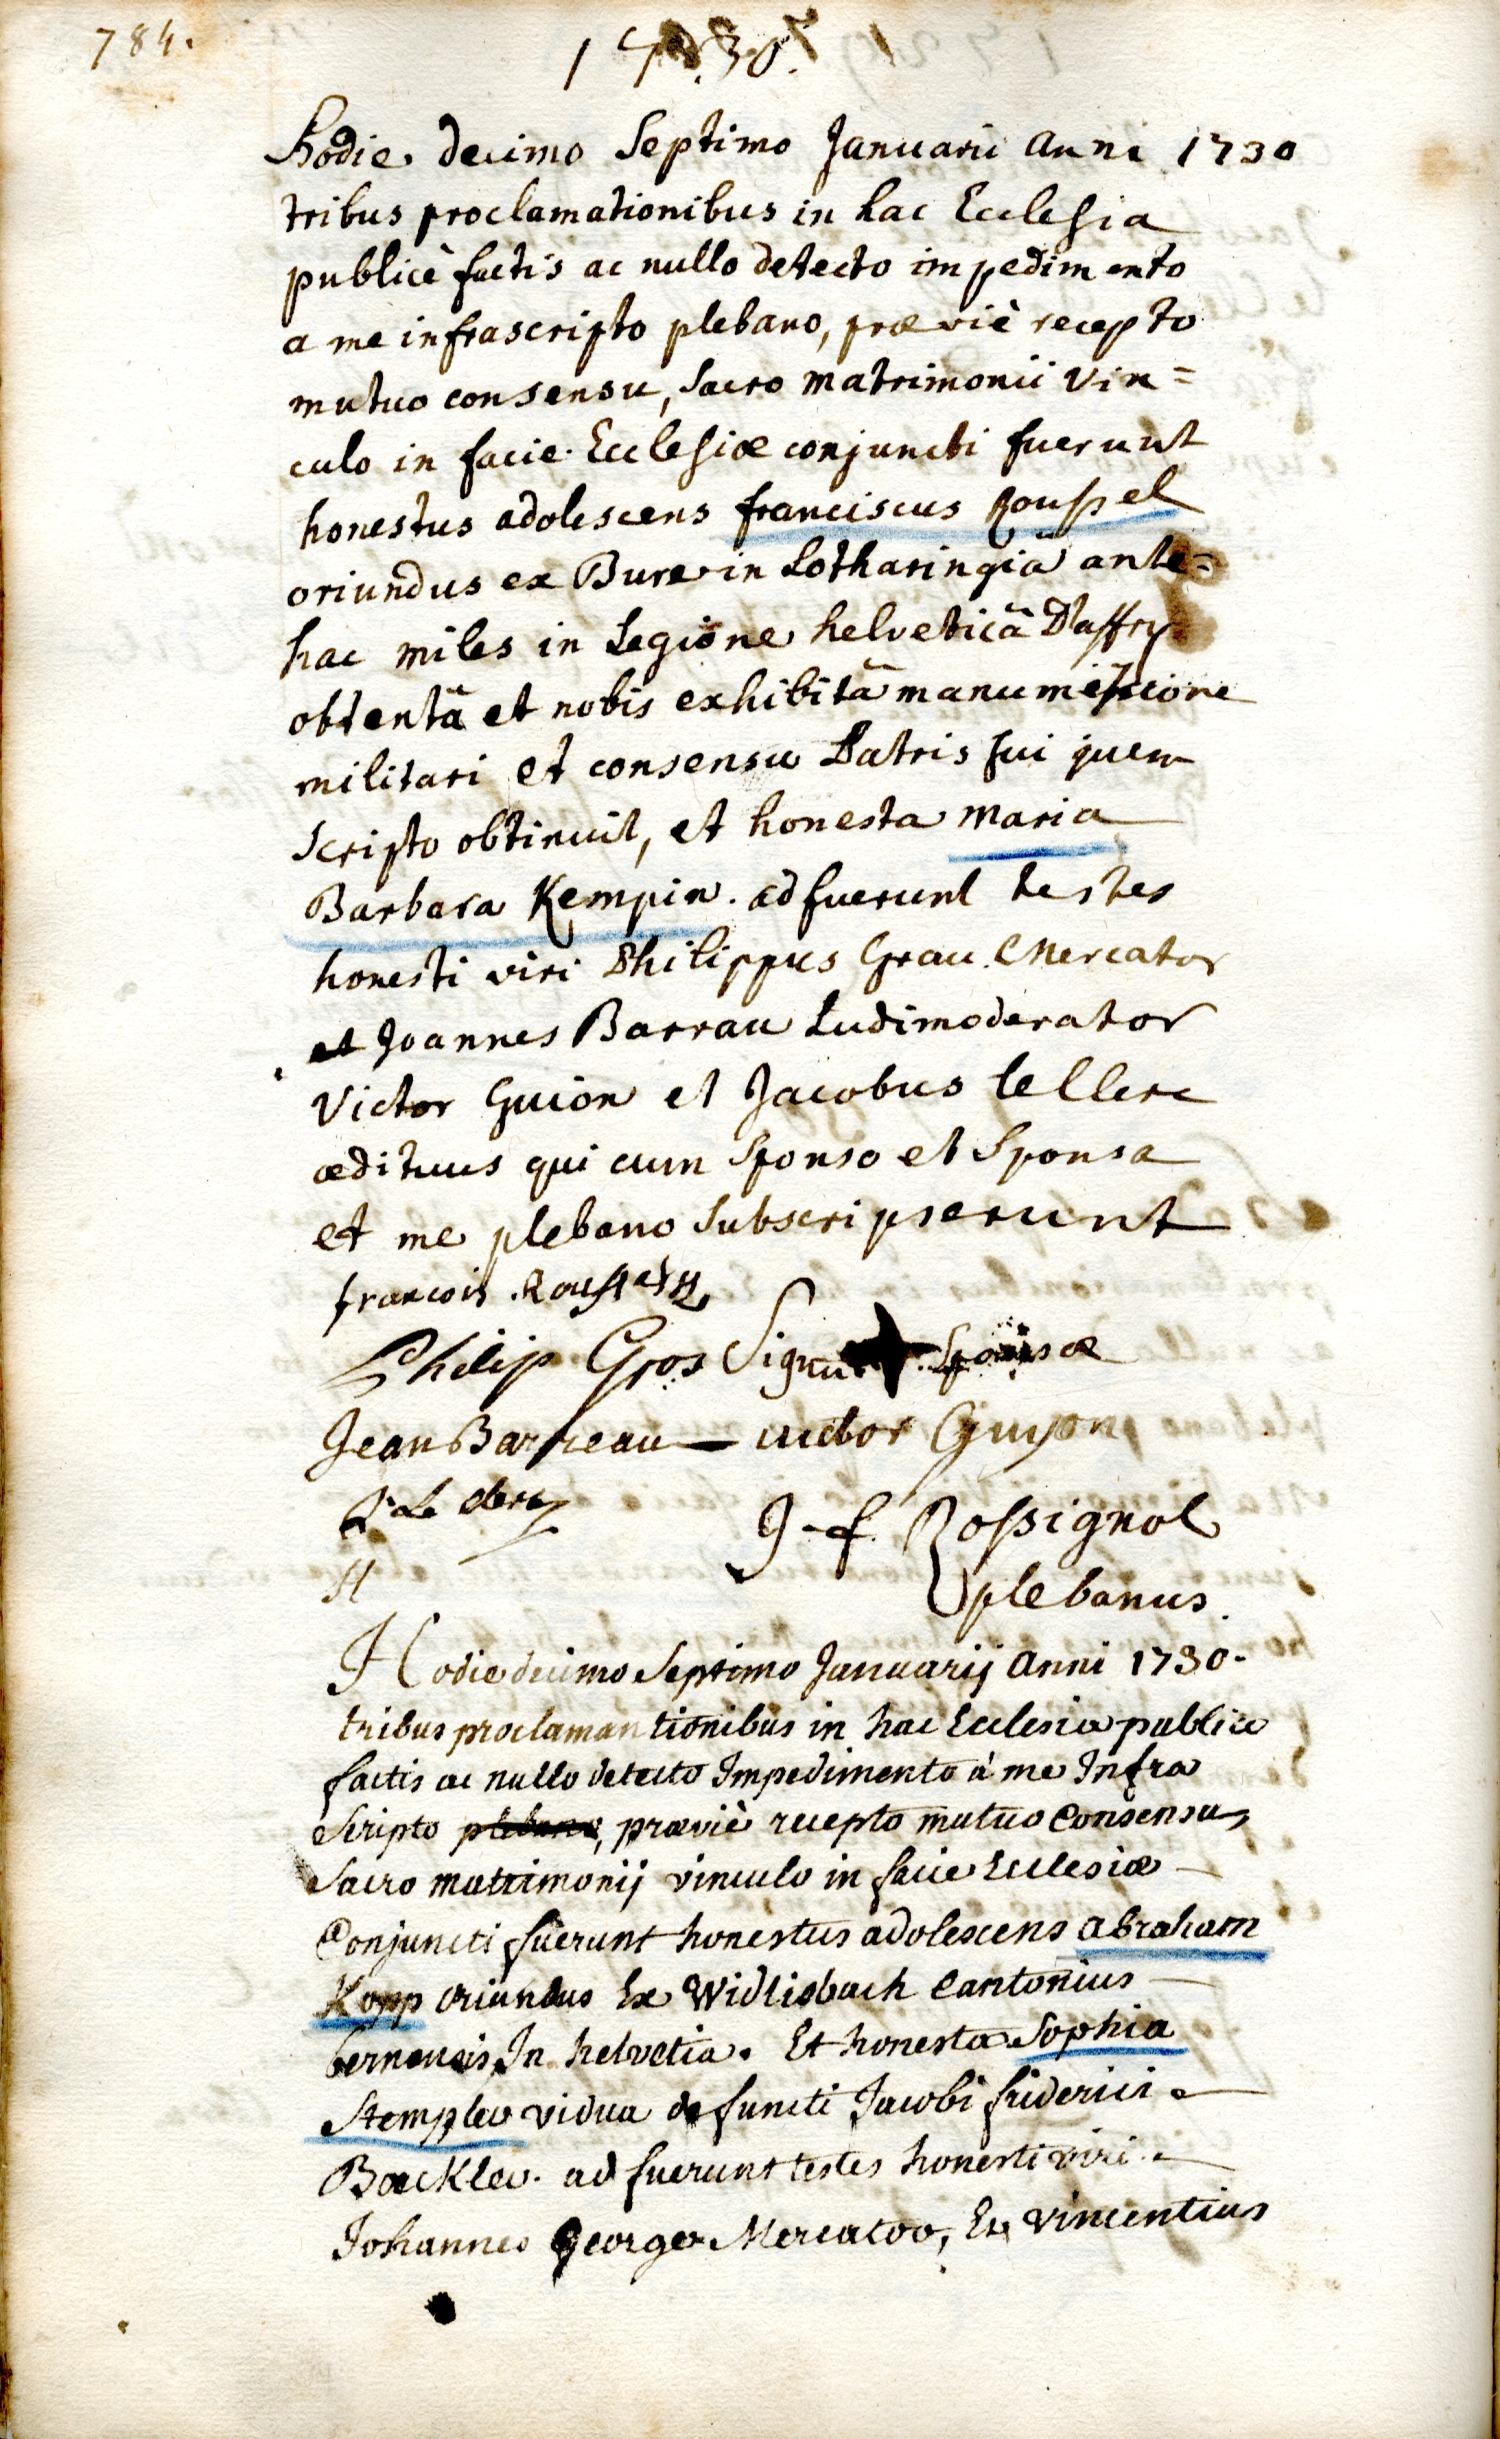 784.
1730.
Hodie decimo Septimo Januarii anni 1730
tribus proclamationibus in hac Ecclesia
publicè factis ac nullo detecto impedimento
a me infrascripto plebano, præviè recepto
mutuo consensu, sacro matrimonii vin=
culo in facie Ecclesiæ conjuncti fuerunt
honestus adolescens franciscus Roussel
oriundus ex Bure in Lotharingiâ ante=
hac miles in Legione helveticâ D'affry
obtentâ et nobis exhibitâ manumissione
militari et consensu Patris sui quem
scripto obtinuit, et honesta Maria
Barbara Kempin. adfuerunt testes
honesti viri Philippus Grau Mercator
et Joannes Barrau Ludimoderator
Victor Guion et Jacobus le Clerc
ædituus qui cum Sponso et Sponsa
et me plebano subscripserunt
francois Rousselle
Philip Gros Signum Sponsæ
Jean Barreau victor Guyon
J. Le Clerc
J-f. Rossignol
plebanus.
H
Hodie decimo Septimo Januarij anni 1730.
tribus proclamantionibus in hac Ecclesia publice
factis ac nullo detecto Impedimento à me Infra
Scripto plebano, præviè recepto mutuo Consensu,
Sacro matrimonij vinculo in facie Ecclesiæ
Conjuncti fuerunt honestus adolescens abraham
Kopp oriundus Ex Widlisbach Cantonius
bernensis In helvetia. Et honesta Sophia
Stempler vidua defuncti Jacobi friderici
Bœckler. adfuerunt testes honesti viri
Johannes George Mercator, Et Vincentius